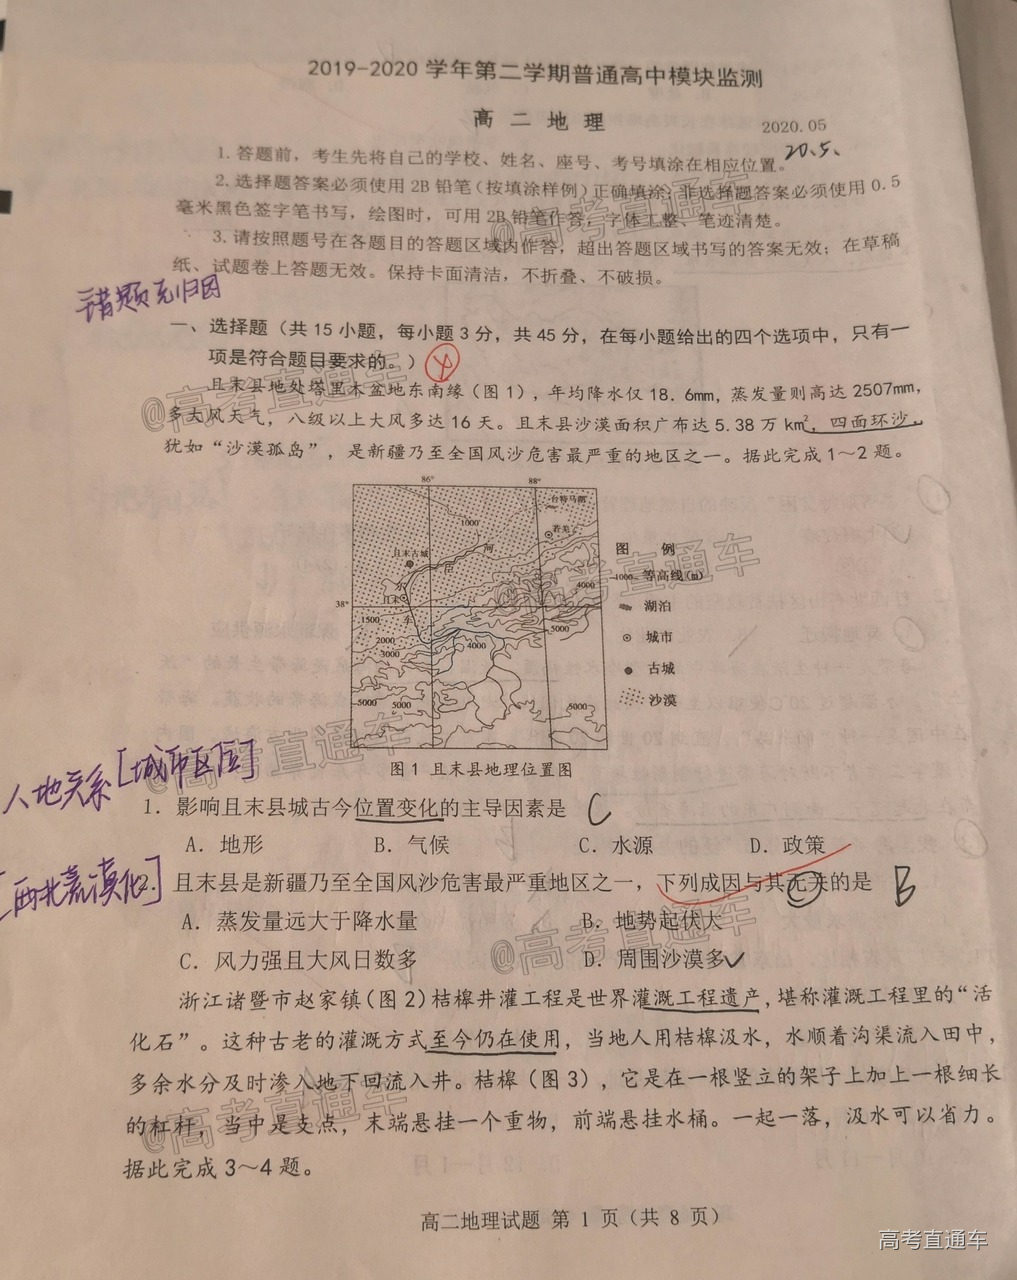 2019-2020 学年第二学期普通高中模块监测
高 二 地 理
2020.05
20.5.
1.答题前，考生先将自己的学校、姓名、座号、考号填涂在相应位置。
2.选择题答案必须使用 2B 铅笔（按填涂样例）正确填涂；非选择题答案必须使用 0.5
毫米黑色签字笔书写，绘图时，可用 2B 铅笔作答，字体工整、笔迹清楚。
3.请按照题号在各题目的答题区域内作答，超出答题区域书写的答案无效；在草稿
纸、试题卷上答题无效。保持卡面清洁，不折叠、不破损。
错题无归因
一、选择题（共 15 小题，每小题 3 分，共 45 分，在每小题给出的四个选项中，只有一
项是符合题目要求的。）
且末县地处塔里木盆地东南缘（图 1），年均降水仅 18.6mm，蒸发量则高达 2507mm，
多大风天气，八级以上大风多达 16 天。且末县沙漠面积广布达 5.38 万 km²，四面环沙，
犹如“沙漠孤岛”，是新疆乃至全国风沙危害最严重的地区之一。据此完成 1～2 题。
86° 88°
台特马湖
1000
若羌
且末古城
河
臣
尔
且末
车
38°
1500
2000
3000
4000
4000
5000
5000
5000
5000
图 例
-1000- 等高线(m)
湖泊
城市
古城
沙漠
图 1 且末县地理位置图
人地关系[城市区位]
1．影响且末县城古今位置变化的主导因素是 C
A．地形 B．气候 C．水源 D．政策
[西北荒漠化]
2．且末县是新疆乃至全国风沙危害最严重地区之一，下列成因与其无关的是 B
A．蒸发量远大于降水量 B．地势起伏大
C．风力强且大风日数多 D．周围沙漠多
浙江诸暨市赵家镇（图 2）桔槔井灌工程是世界灌溉工程遗产，堪称灌溉工程里的“活
化石”。这种古老的灌溉方式至今仍在使用，当地人用桔槔汲水，水顺着沟渠流入田中，
多余水分及时渗入地下回流入井。桔槔（图 3），它是在一根竖立的架子上加上一根细长
的杠杆，当中是支点，末端悬挂一个重物，前端悬挂水桶。一起一落，汲水可以省力。
据此完成 3～4 题。
高二地理试题 第 1 页（共 8 页）
@高考直通车
@高考直通车
@高考直通车
@高考直通车
@高考直通车
@高考直通车
高考直通车